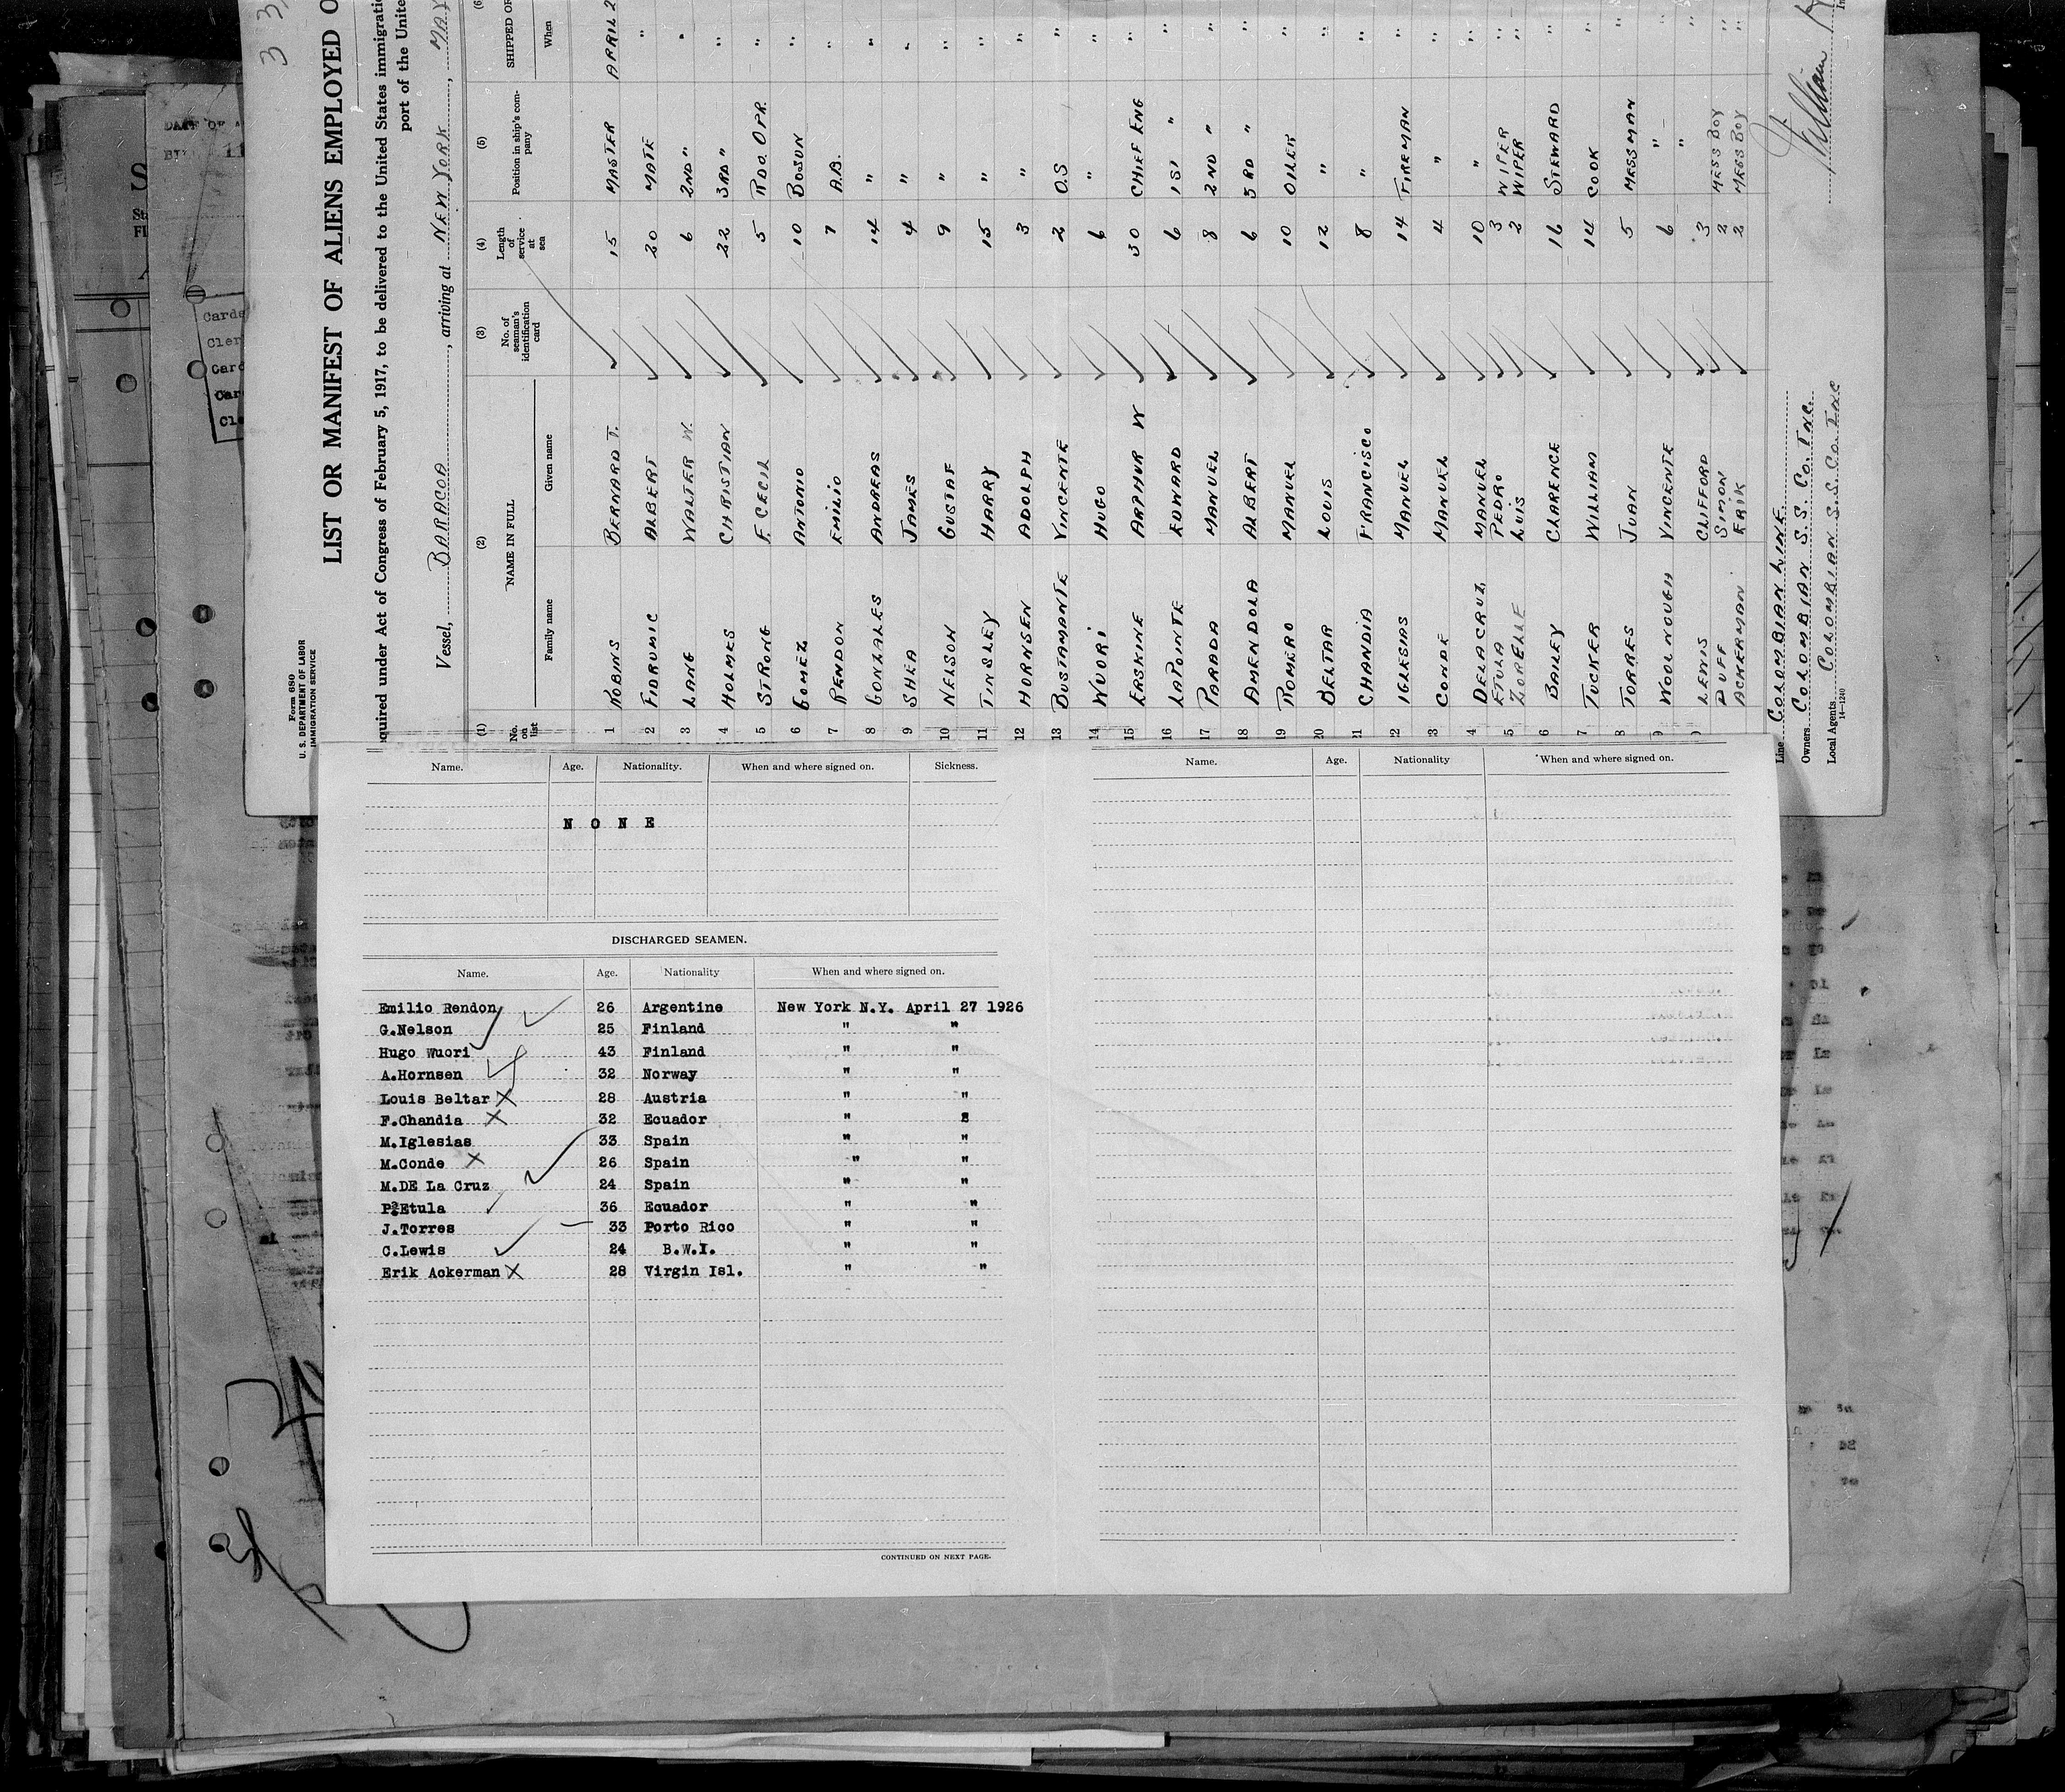 Form 680
U. S. DEPARTMENT OF LABOR
IMMIGRATION SERVICE
LIST OR MANIFEST OF ALIENS EMPLOYED O
equired under Act of Congress of February 5, 1917, to be delivered to the United States immigratio
port of the Unite
Vessel, BARACOA, arriving at NEW YORK, MAY
(1) No. on list (2) NAME IN FULL Family name Given name (3) No. of seaman's identification card (4) Length of service at sea (5) Position in ship's company SHIPPED OR When
1 ROBINS BERNARD T. 15 MASTER APRIL 2
2 FIDRUMIC ALBERT 20 MATE "
3 LANG WALTER W. 6 2ND " "
4 HOLMES CHRISTIAN 22 3RD " "
5 STRONG F. CECIL 5 RDO. OPR. "
6 GOMEZ ANTONIO 10 BO.SUN "
7 RENDON EMILIO 7 A.B. "
8 GONZALES ANDREAS 14 " "
9 SHEA JAMES 4 " "
10 NELSON GUSTAF 9 " "
11 TINSLEY HARRY 15 " "
12 HORNSEN ADOLPH 3 " "
13 BUSTAMANTE VINCENTE 2 O.S "
14 WUORI HUGO 6 " "
15 ERSKINE ARTHUR W 30 CHIEF ENG "
16 LAPOINTE EDWARD 6 1ST " "
17 PARADA MANUEL 8 2ND " "
18 AMENDOLA ALBERT 6 3RD " "
19 ROMERO MANUEL 10 OILER "
20 BELTAR LOUIS 12 " "
21 CHANDIA FRANCISCO 8 " "
22 IGLESIAS MANUEL 14 FIREMAN "
3 CONDE MANUEL 4 " "
4 DELA CRUZ MANUEL 10 " "
5 ETULA PEDRO 3 WIPER "
ZORELLE LUIS 2 WIPER "
6 BAILEY CLARENCE 16 STEWARD "
7 TUCKER WILLIAM 14 COOK "
8 TORRES JUAN 5 MESSMAN "
9 WOOLNOUGH VINCENTE 6 " "
LEWIS CLIFFORD 3 " "
DUFF SIMON 2 MESS BOY "
ACKERMAN ERIK 2 MESS BOY "
Line COLOMBIAN LINE
Owners COLOMBIAN S.S. Co. INC.
Local Agents COLOMBIAN S.S. Co. INC
14—1240
Name. Age. Nationality. When and where signed on. Sickness.
NONE
DISCHARGED SEAMEN.
Name. Age. Nationality When and where signed on.
Emilio Rendon 26 Argentine New York N.Y. April 27 1926
G.Nelson 25 Finland " "
Hugo Wuori 43 Finland " "
A.Hornsen 32 Norway " "
Louis Beltar 28 Austria " "
F.Chandia 32 Ecuador "
M.Iglesias 33 Spain " "
M.Conde 26 Spain " "
M.DE La Cruz 24 Spain " "
P.Etula 36 Ecuador " "
J.Torres 33 Porto Rico " "
C.Lewis 24 B.W.I. " "
Erik Ackerman 28 Virgin Isl. " "
CONTINUED ON NEXT PAGE.
Name. Age. Nationality When and where signed on.